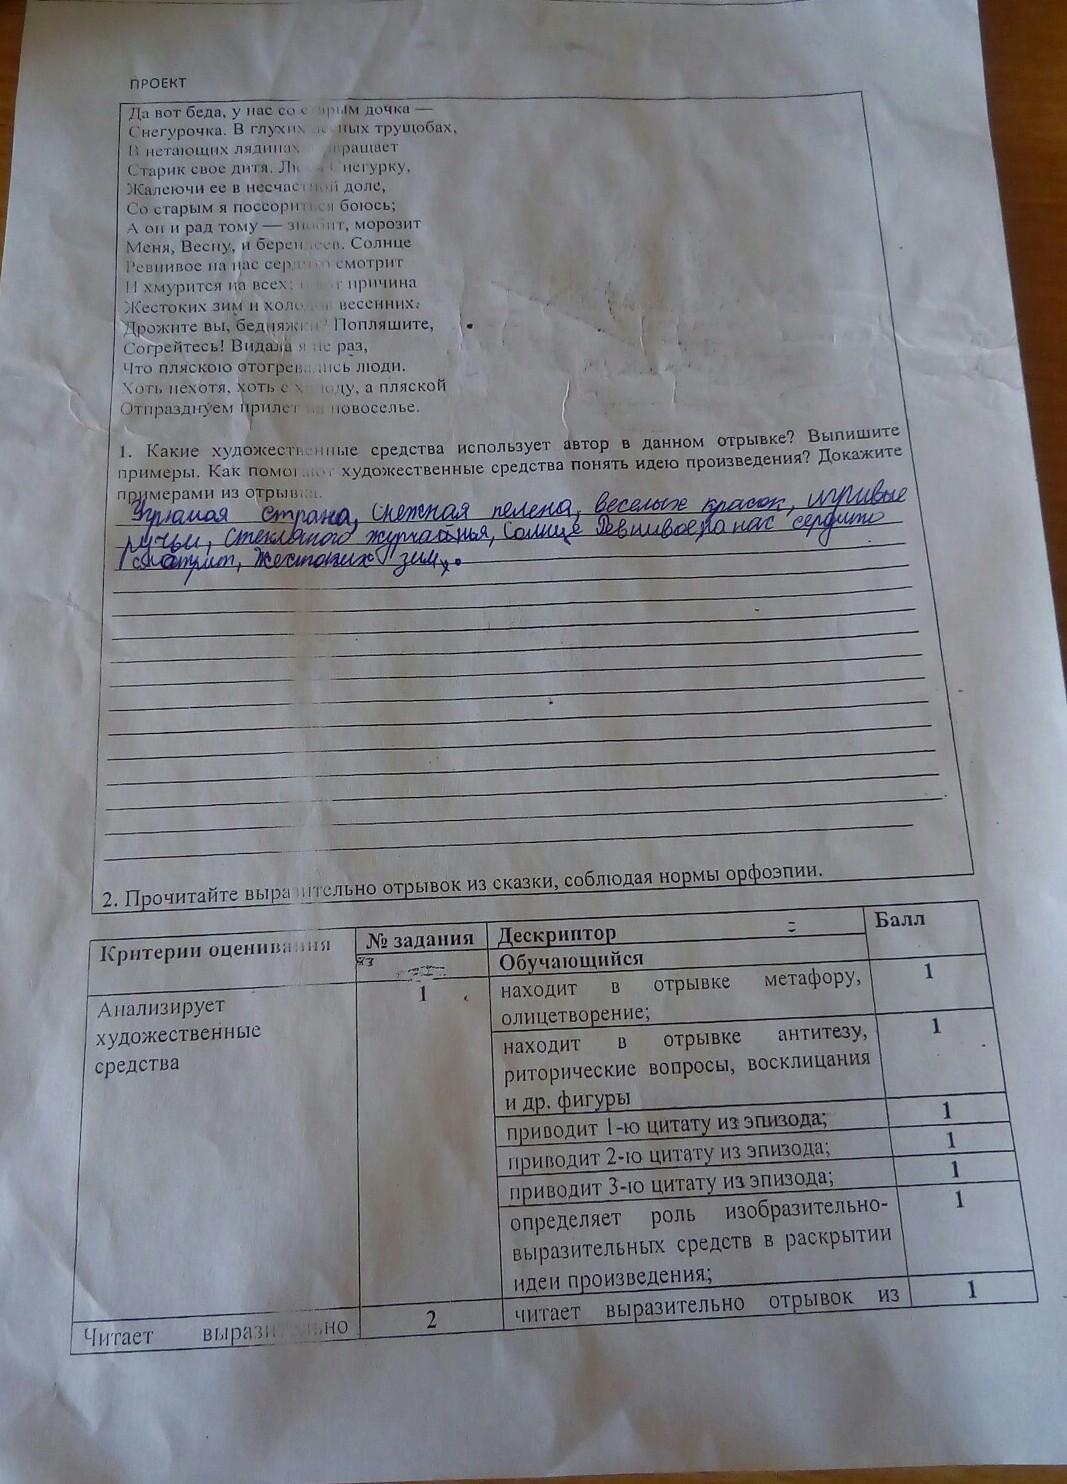 ПРОЕКТ
Да вот беда, у нас со старым дочка —
Снегурочка. В глухих лесных трущобах,
В нетающих лядинах возвращает
Старик свое дитя. Любя Снегурку,
Жалеючи ее в несчастной доле,
Со старым я поссориться боюсь;
А он и рад тому — знобит, морозит
Меня, Весну, и берендеев. Солнце
Ревнивое на нас сердито смотрит
И хмурится на всех; и вот причина
Жестоких зим и холодов весенних.
Дрожите вы, бедняжки? Попляшите,
Согрейтесь! Видала я не раз,
Что пляскою отогревались люди.
Хоть нехотя, хоть с холоду, а пляской
Отпразднуем прилет на новоселье.
1. Какие художественные средства использует автор в данном отрывке? Выпишите
примеры. Как помогают художественные средства понять идею произведения? Докажите
примерами из отрывка.
Угрюмая страна, снежная пелена, веселых красок, игривые
ручьи, стеклянного журчанья, Солнце Ревнивое на нас сердито
смотрит, Жестоких зим.
2. Прочитайте выразительно отрывок из сказки, соблюдая нормы орфоэпии.
Критерии оценивания № задания Дескриптор Балл
Обучающийся
Анализирует
художественные
средства
1
находит в отрывке метафору,
олицетворение;
1
находит в отрывке антитезу,
риторические вопросы, восклицания
и др. фигуры
1
приводит 1-ю цитату из эпизода; 1
приводит 2-ю цитату из эпизода; 1
приводит 3-ю цитату из эпизода; 1
определяет роль изобразительно-
выразительных средств в раскрытии
идеи произведения;
1
Читает выразительно 2 читает выразительно отрывок из 1